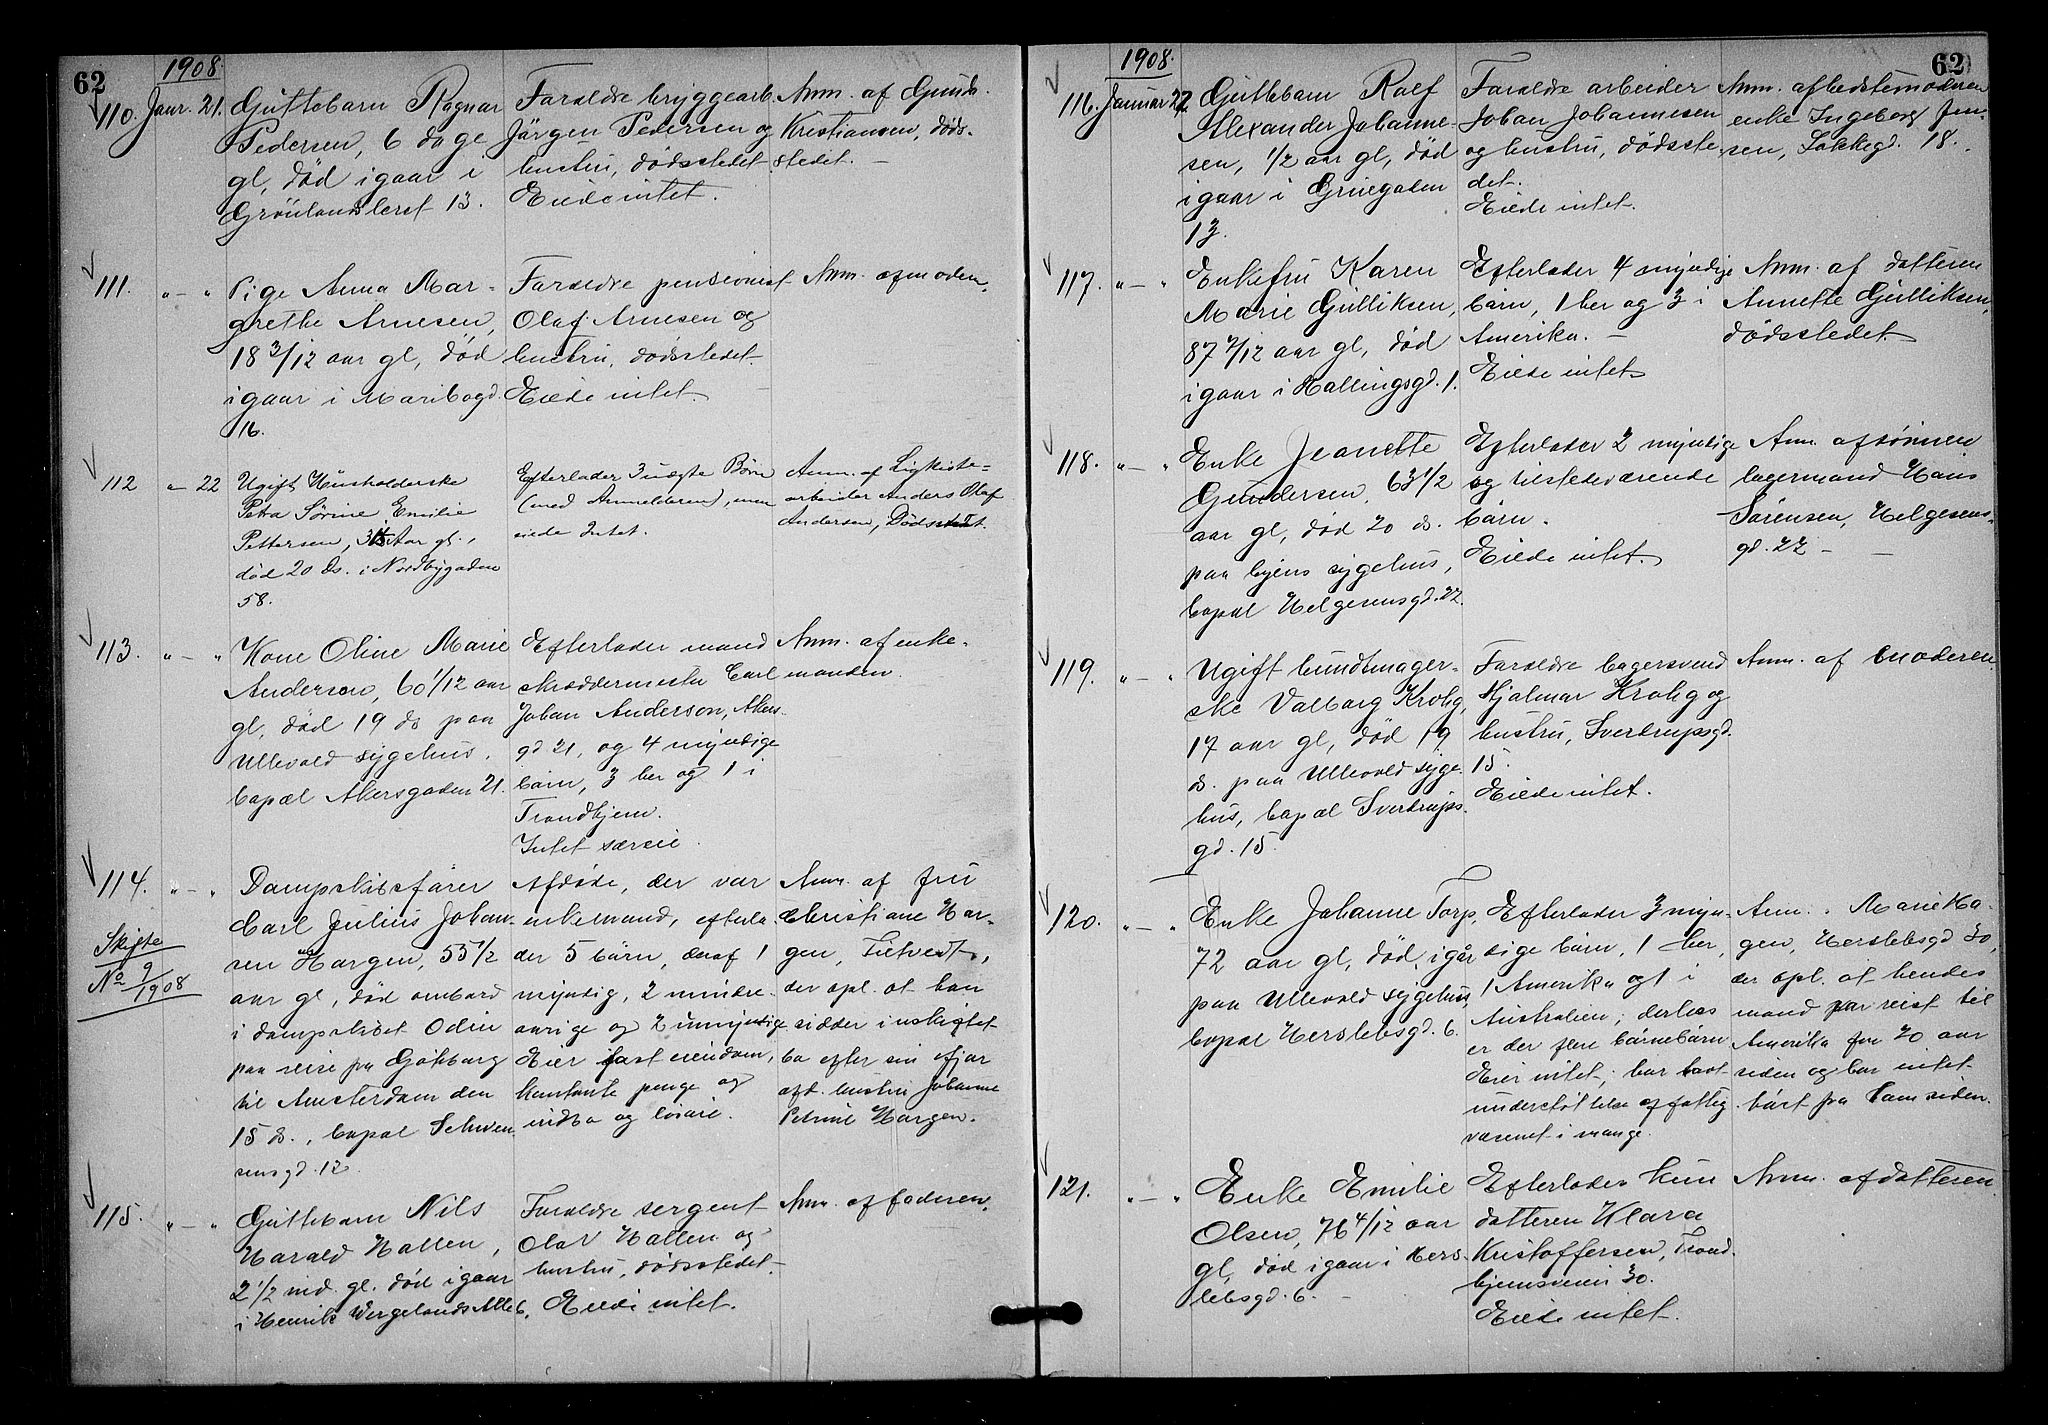 62
1908.
110. Janr. 21.
Guttebarn Ragnar
Pedersen, 6 dage
gl, død igaar i
Grønlandsleret 13.
Forældre bryggearb.
Jørgen Pedersen og
hustru, dødsstedet.
Eiede intet.
Anm. af Gunh.
Kristiansen, døds-
stedet. —
111. " — "
Pige Anna Mar-
grethe Arnesen,
18 3/12 aar gl, død
igaar i Maribogd.
16.
Forældre pensionist
Olaf Arnesen og
hustru, dødsstedet.
Eiede intet.
Anm. af moderen.
112 " — 22
Ugift Husholderske
Petra Sørine Emilie
Pettersen, Aar gl.,
død 20 ds. i Nordbygaden
58.
Efterlader 3 uægte Børn
(med Anmelderen), men
eiede Intet.
Anm. af Ligkiste-
arbeider Anders Olaf
Andersen, Dødsstedet.
113. " — "
Kone Oline Marie
Anderson, 60 1/12 aar
gl, død 19 ds paa
Ullevold sygehus,
bopæl Akersgaden 21.
Efterlader mand
skræddermester Carl
Johan Anderson, Akers-
gd 21, og 4 myndige
børn, 3 her og 1 i
Trondhjem.
Intet særeie.
Anm. af enke-
manden.
114. " — "
Skifte
No 9/1908
Dampskibsfører
Carl Julius Johan-
sen Hargen, 55 1/2
aar gl, død ombord
i dampskibet Odin
paa reise fra Gøteborg
til Amsterdam den
15 ds., bopæl Schwen-
sensgd. 12.
Afdøde, der var
enkemand, efterla-
der 5 børn, deraf 1
myndig, 2 mindre-
aarige og 2 umyndige
Eier fast eiendom,
kontante penge og
indbo og løsøre.
Anm. af fru
Christiane Har-
gen, Tietvedt,
der opl. at han
sidder i uskiftet
bo efter sin ifjor
afd. hustru Johanne
Petrine Hargen.
115. " — "
Guttebarn Nils
Harald Hallen,
2 1/2 md. gl. død igaar
i Henrik Wergelands Alle 6.
Forældre sergent
Olaf Hallen og
hustru, dødsstedet.
Eiede intet.
Anm. af faderen.
1908.
62
116. Januar 22
Guttebarn Rolf
Alexander Johanne-
sen, 1/2 aar gl, død
igaar i Gruegaden
13.
Forældre arbeider
Johan Johannesen
og hustru, dødsste-
det.
Eiede intet.
Anm. af bedstemoderen
enke Ingeborg Jen-
sen, Lakkegd. 18.
117. " — "
Enkefru Karen
Marie Gulliksen,
87 7/12 aar gl, død
igaar i Hallingsgd. 1.
Efterlader 4 myndige
børn, 1 her og 3 i
Amerika. —
Eiede intet
Anm. af datteren
Annette Gulliksen,
dødsstedet.
118. " — "
Enke Jeanette
Gundersen, 63 1/2
aar gl, død 20 ds.
paa byens sygehus,
bopæl Helgesensgd. 22.
Efterlader 2 myndige
og tilstedeværende
børn.
Eiede intet.
Anm. af sønnen
lagermand Hans
Sørensen, Helgesens-
gd. 22 — —
119. " — "
Ugift bundtmager-
ske Valborg Krohg,
17 aar gl, død 19
ds. paa Ullevold syge-
hus, bopæl Sverdrups-
gd. 15.
Forældre bagersvend
Hjalmar Krohg og
hustru, Sverdrupsgd.
15.
Eiede intet.
Anm. af moderen
120. " — "
Enke Johanne Torp,
72 aar gl, død igår
paa Ullevold sygehus,
bopæl Herslebsgd. 6.
Efterlader 3 myn-
dige børn, 1 her,
1 Amerika og 1 i
Australien; derhos
er der flere børnebørn
Eier intet; har havt
understøttelse af fattig-
væsenet i mange.
Anm. Marie Ha-
gen, Herslebsgd 30,
der opl. at hendes
mand har reist til
Amerika for 20 aar
siden og har intet
hørt fra ham siden.
121. " — "
Enke Emilie
Olsen, 76 4/12 aar
gl, død igaar i Hers-
lebsgd. 6. —
Efterlader kun
datteren Klara
Kristoffersen, Trond-
hjemsveien 30.
Eiede intet.
Anm. af datteren